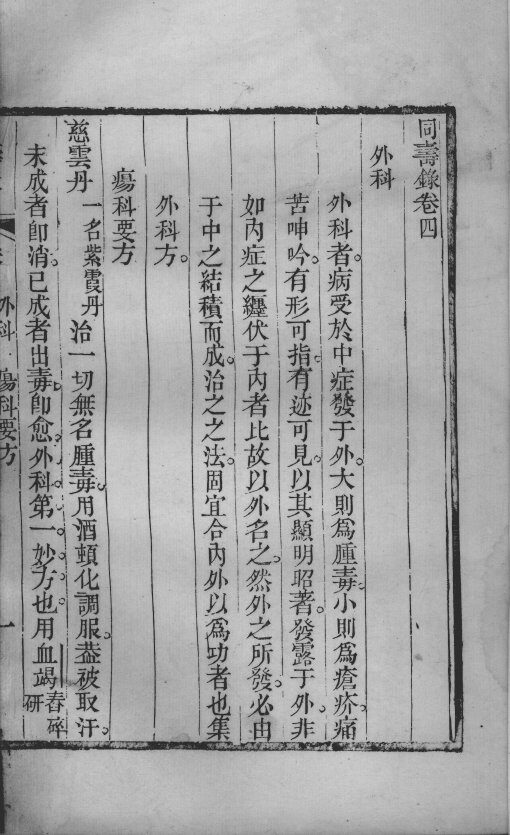 同壽錄卷四
外科
外科者。病受於中症發于外。大則爲腫毒。小則爲瘡疥。痛
苦呻吟。有形可指。有迹可見。以其顯明昭著。發露于外。非
如內症之纏伏于內者比故以外名之。然外之所發。必由
于中之結積而成。治之之法。固宜合內外以爲功者也集
外科方。
瘍科要方
慈雲丹 一名紫霞丹 治一切無名腫毒。用酒頓化調服。葢被取汗。
未成者卽消。已成者出毒卽愈。外科第一妙方也。用血竭 舂碎研
外科 瘍科要方 一